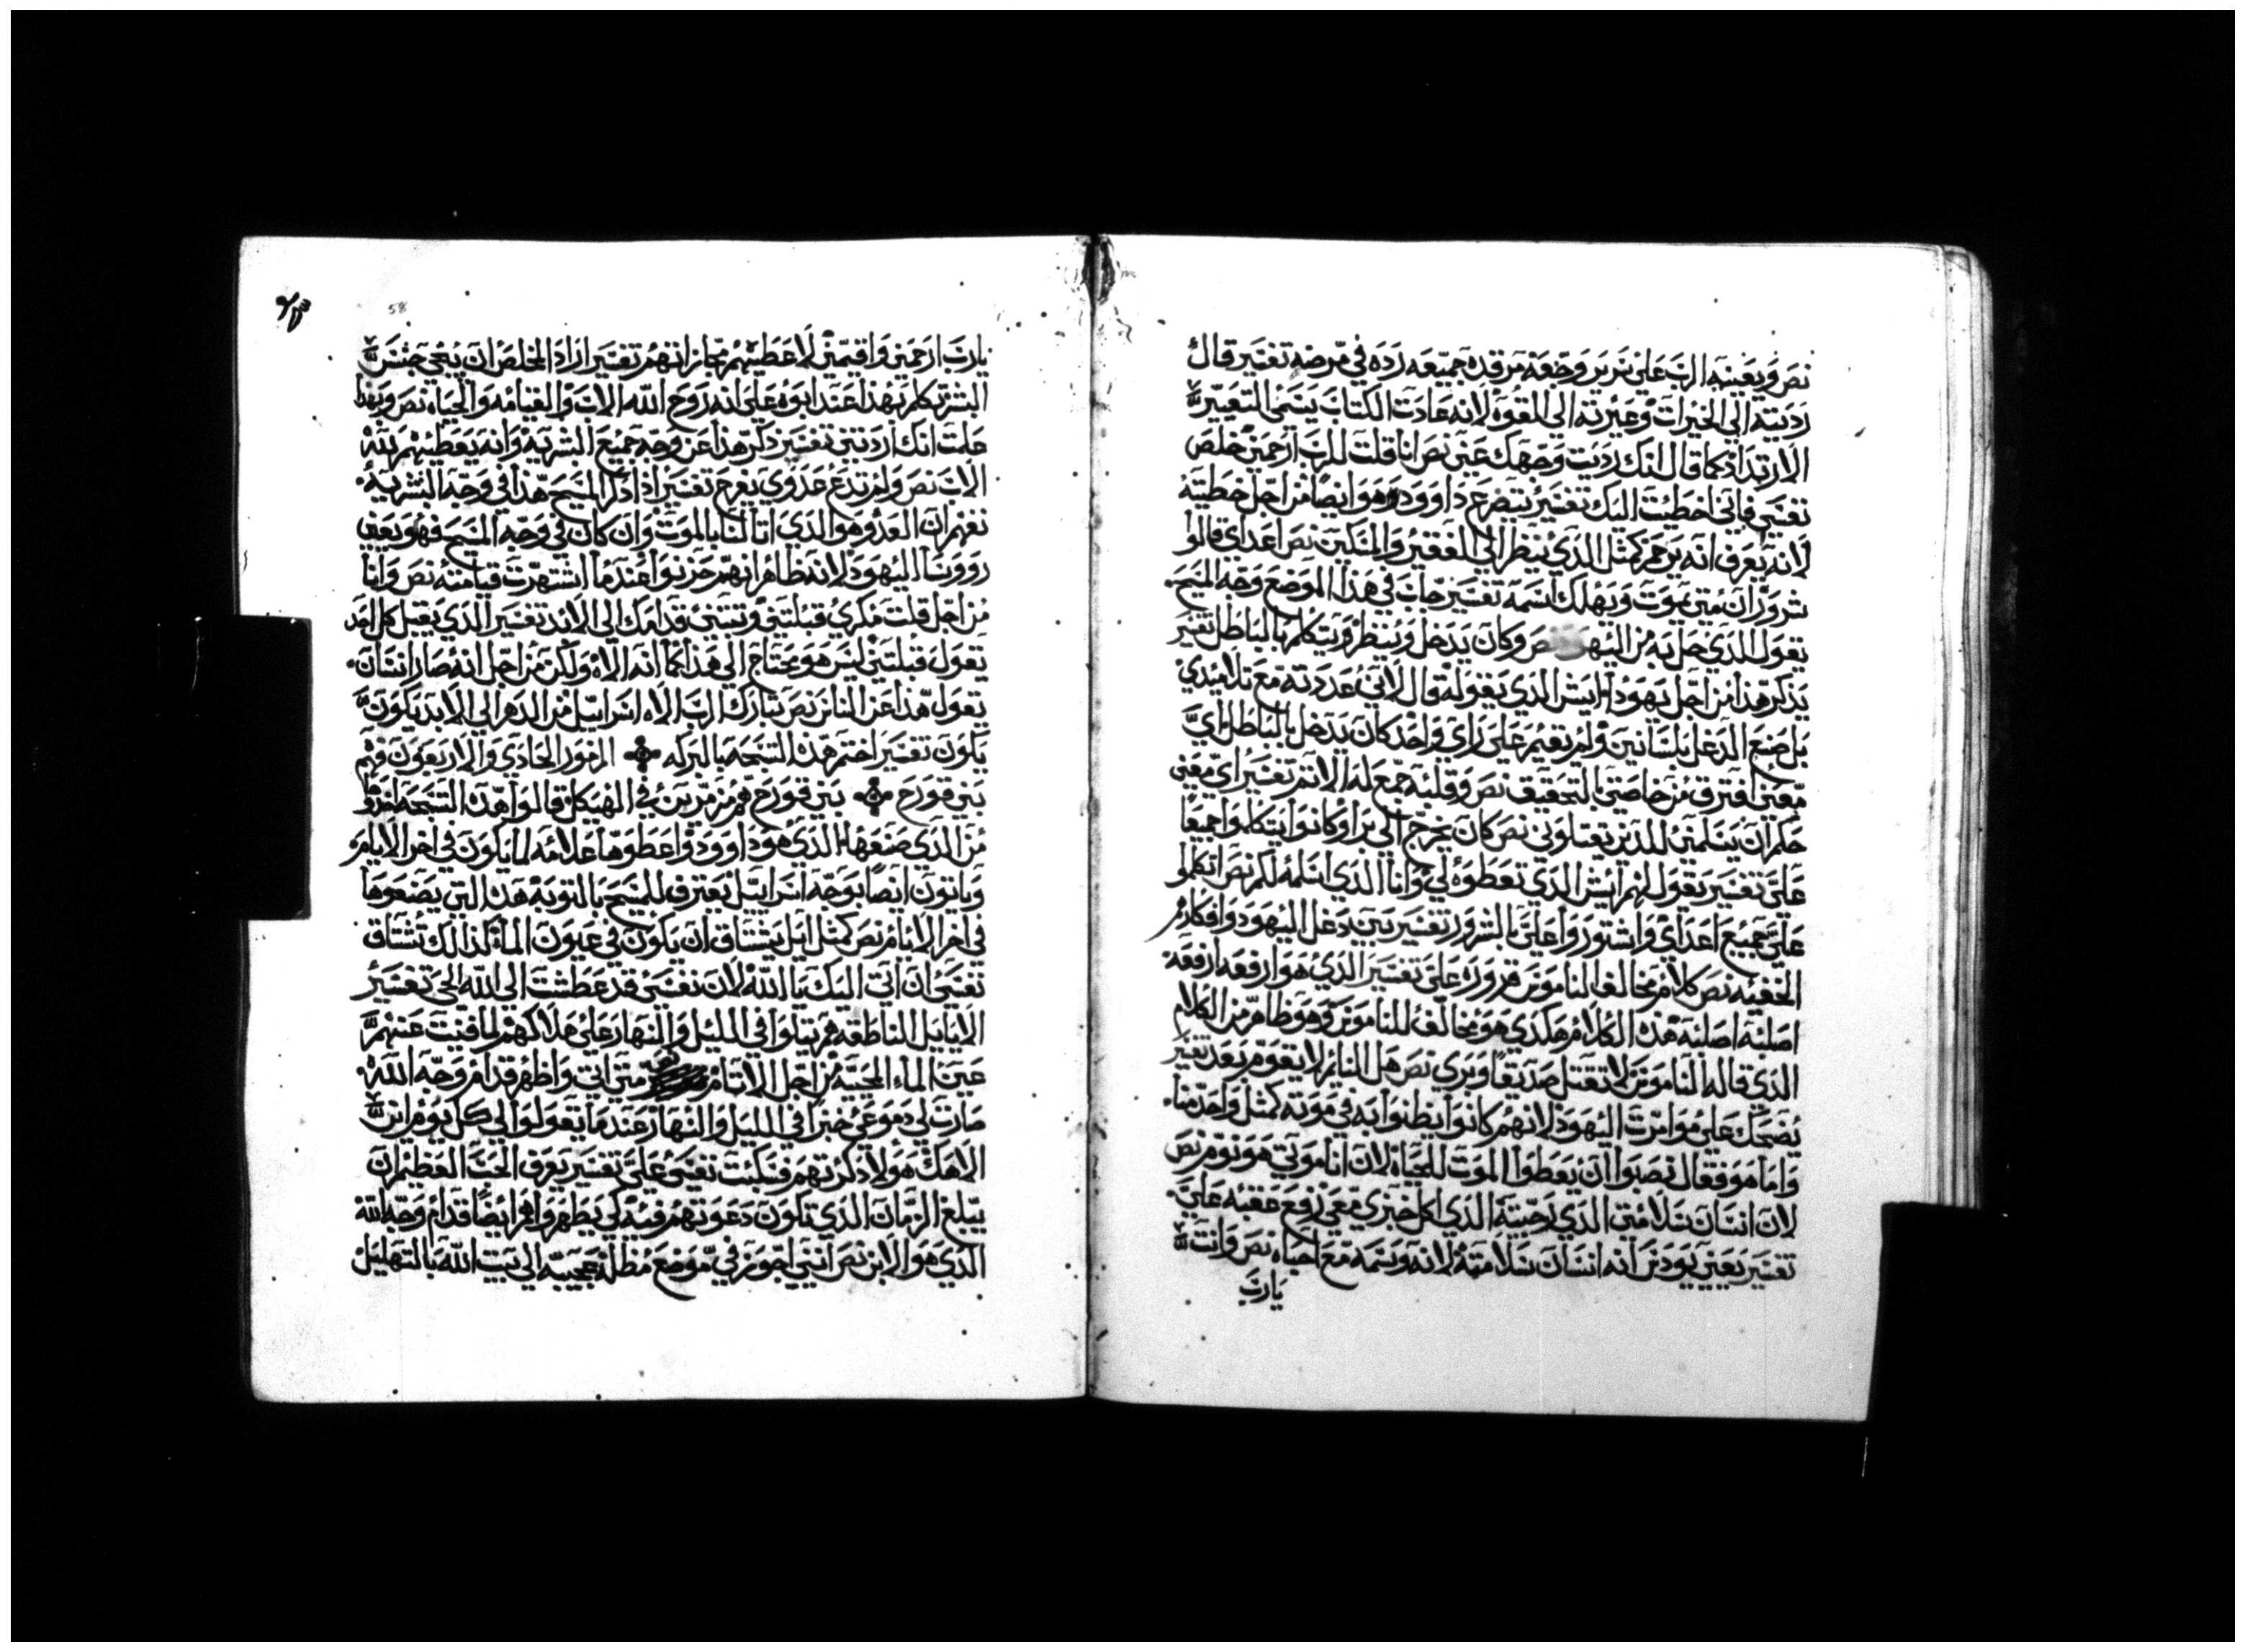 نص ويعينه الرب على سرير وجعه مرقده جميعه رده في مرضه تفسير قال
رديته الي الخيرات وغيرته الي القوة لانه عادت الكتاب يسمي التغيير
الارتداد كما قال انك رديت وجهك عني نص انا قلت للرب ارحمني خلص
نفسي فاني اخطيت اليك تفسير يتضرع داوود وهو ايضا من اجل خطيته
لانه يعرف انه يرحم كمثل الذي ينظر الي الفقير والمسكين نص اعداي قالوا
شرور ان متي يموت ويهلك اسمه تفسير جاب في هذا الموضع وجه المسيح
يقول الذي حل به من اليهود نص وكان يدخل وينظر ويتكلم بالباطل تفسير
يذكر هذا من اجل يهودا ايش الذي يقوله قال لاني عددته مع تلاميذي
بل صنع الدغل بلسانين ولم يقيم على راي واحد كان يدخل بالباطل اي
معني افترق من خاصتي بالتحقيق نص وقلبه جمع له الاثم تفسير اي معني
حكم ان يسلمني للذين يقتلوني نص كان يخرج الي برا وكانوا يتكلموا جميعا
علي تفسير يقول لهم ايش الذي تعطوه لي وانا الذي اسلمه لكم نص اتكلموا
علي جميع اعداي واشتوروا علي بالشرور تفسير يبين دغل اليهود وافكارهم
الخفيه نص كلام مخالف الناموس قرروه علي تفسير الذي هو ارفعه ارفعه
اصلبه اصلبه هذه الكلام هكدي هو مخالف للناموس وهو ظاهر من الكلام
الذي قاله الناموس لا تقتل صديقا وبري نص هل النائم لا يقوم بعد تفسير
يضحك على موامرت اليهود لانهم كانوا يظنوا به في موته كمثل واحد منا
واما هو فقال نصبوا ان يعطوا الموت للحياه لان انا موتي هو نوم نص
لان انسان سلامتي الذي رجيته الذي اكل خبزي معي رفع عقبه علي
تفسير يعني يودس انه انسان سلامته لانه وسمه مع احباه نص وانت
يارب
58
يارب ارحمني واقيمني لاعطيهم مجازاتهم تفسير اراد المخلص ان ينجي جنس
البشر تكلم بهذا عند ابوه على انه روح الله الاب والقيامه والحياه نص وبهذا
علمت انك اردتني تفسير ذكر هذا عن وجه جميع البشرية وانه يعطيهم بنة
الاب نص ولم تدع عدوي يفرح تفسير اذا ذكر المسيح هذا في وجه البشرية
نفهم ان العدو هو الذي اتا لنا بالموت وان كان في وجه المسيح فهو يعني
رووسا اليهود لانه ظاهر انهم حزنوا عندما اشتهرت قيامته نص وانا
من اجل قلت مكري قبلتني وتبتني قدامك الي الابد تفسير الذي يقبل كل احد
يقول قبلتني ليس هو محتاج الي هذا كما انه الاه ولكن من اجل انه صار انسان
يقول هذا عن الناس نص تبارك الرب الاه اسراييل من الدهر الي الابد يكون
يكون تفسير اختم هذه التسبحه بالبركه الزمور الحادي والاربعون فهم
بني قورح بني قورح هم مزمرين في الهيكل قالوا هذه التسبحه اخدوا
من الذي صنعها الذي هو داوود واعطوها علامه لما يكون في اخر الايام
وياتون ايضا بوجه اسراييل يعترف للمسيح بالتوبه هذه التي يصنعوها
في اخر الايام نص كمثل ايل يشتاق ان يكون في عيون الما كذالك تشتاق
نفسي ان اتي اليك يا الله لان نفسي قد عطشت الي الله الحي تفسير
الايايل الناطقه هم يتلوا في الليل والنهار على هلاكهم لما فنيت عنهم
عين الماء المحييه من اجل الاثام متي اتي واظهر قدام وجه الله
صارت لي دموعي خبزا في الليل والنهار عندما يقولوا لي كل يوم اين
الاهك هولا ذكرتهم فسكبت نفسي علي تفسير يعرف الحب العظيم ان
يبلغ الزمان الذي تكون دعوتهم فيه لكي يظهروا هم ايضا قدام وجه الله
الذي هو الابن نص انني اجوز في موضع مظلة عجيبه الي بيت الله بالتهليل